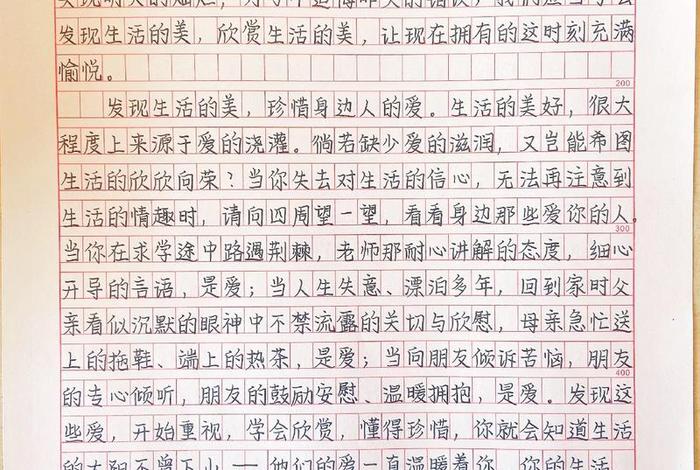 发现生活的美，欣赏生活的美，让现在拥有的这时刻充满
愉悦。
200
发现生活的美，珍惜身边人的爱。生活的美好，很大
程度上来源于爱的浇灌。倘若缺少爱的滋润，又岂能希图
生活的欣欣向荣？当你失去对生活的信心，无法再注意到
生活的情趣时，请向四周望一望，看看身边那些爱你的人。
300
当你在求学途中路遇荆棘，老师那耐心讲解的态度，细心
开导的言语，是爱；当人生失意、漂泊多年，回到家时父
亲看似沉默的眼神中不禁流露的关切与欣慰，母亲急忙送
上的拖鞋、端上的热茶，是爱；当向朋友倾诉苦恼，朋友
400
的专心倾听，朋友的鼓励安慰、温暖拥抱，是爱。发现这
些爱，开始重视，学会欣赏，懂得珍惜，你就会知道生活
的太阳不曾下山——他们的爱一直温暖着你，你的生活